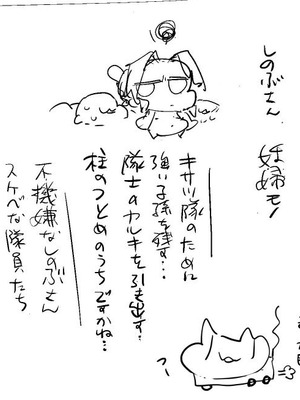 しのぶさん
妊婦モノ
キサツ隊のために
強い子孫を残す…
隊士のヤルキを引き出す…
柱のつとめのうちですかね…
不機嫌なしのぶさん
スケベな隊員たち